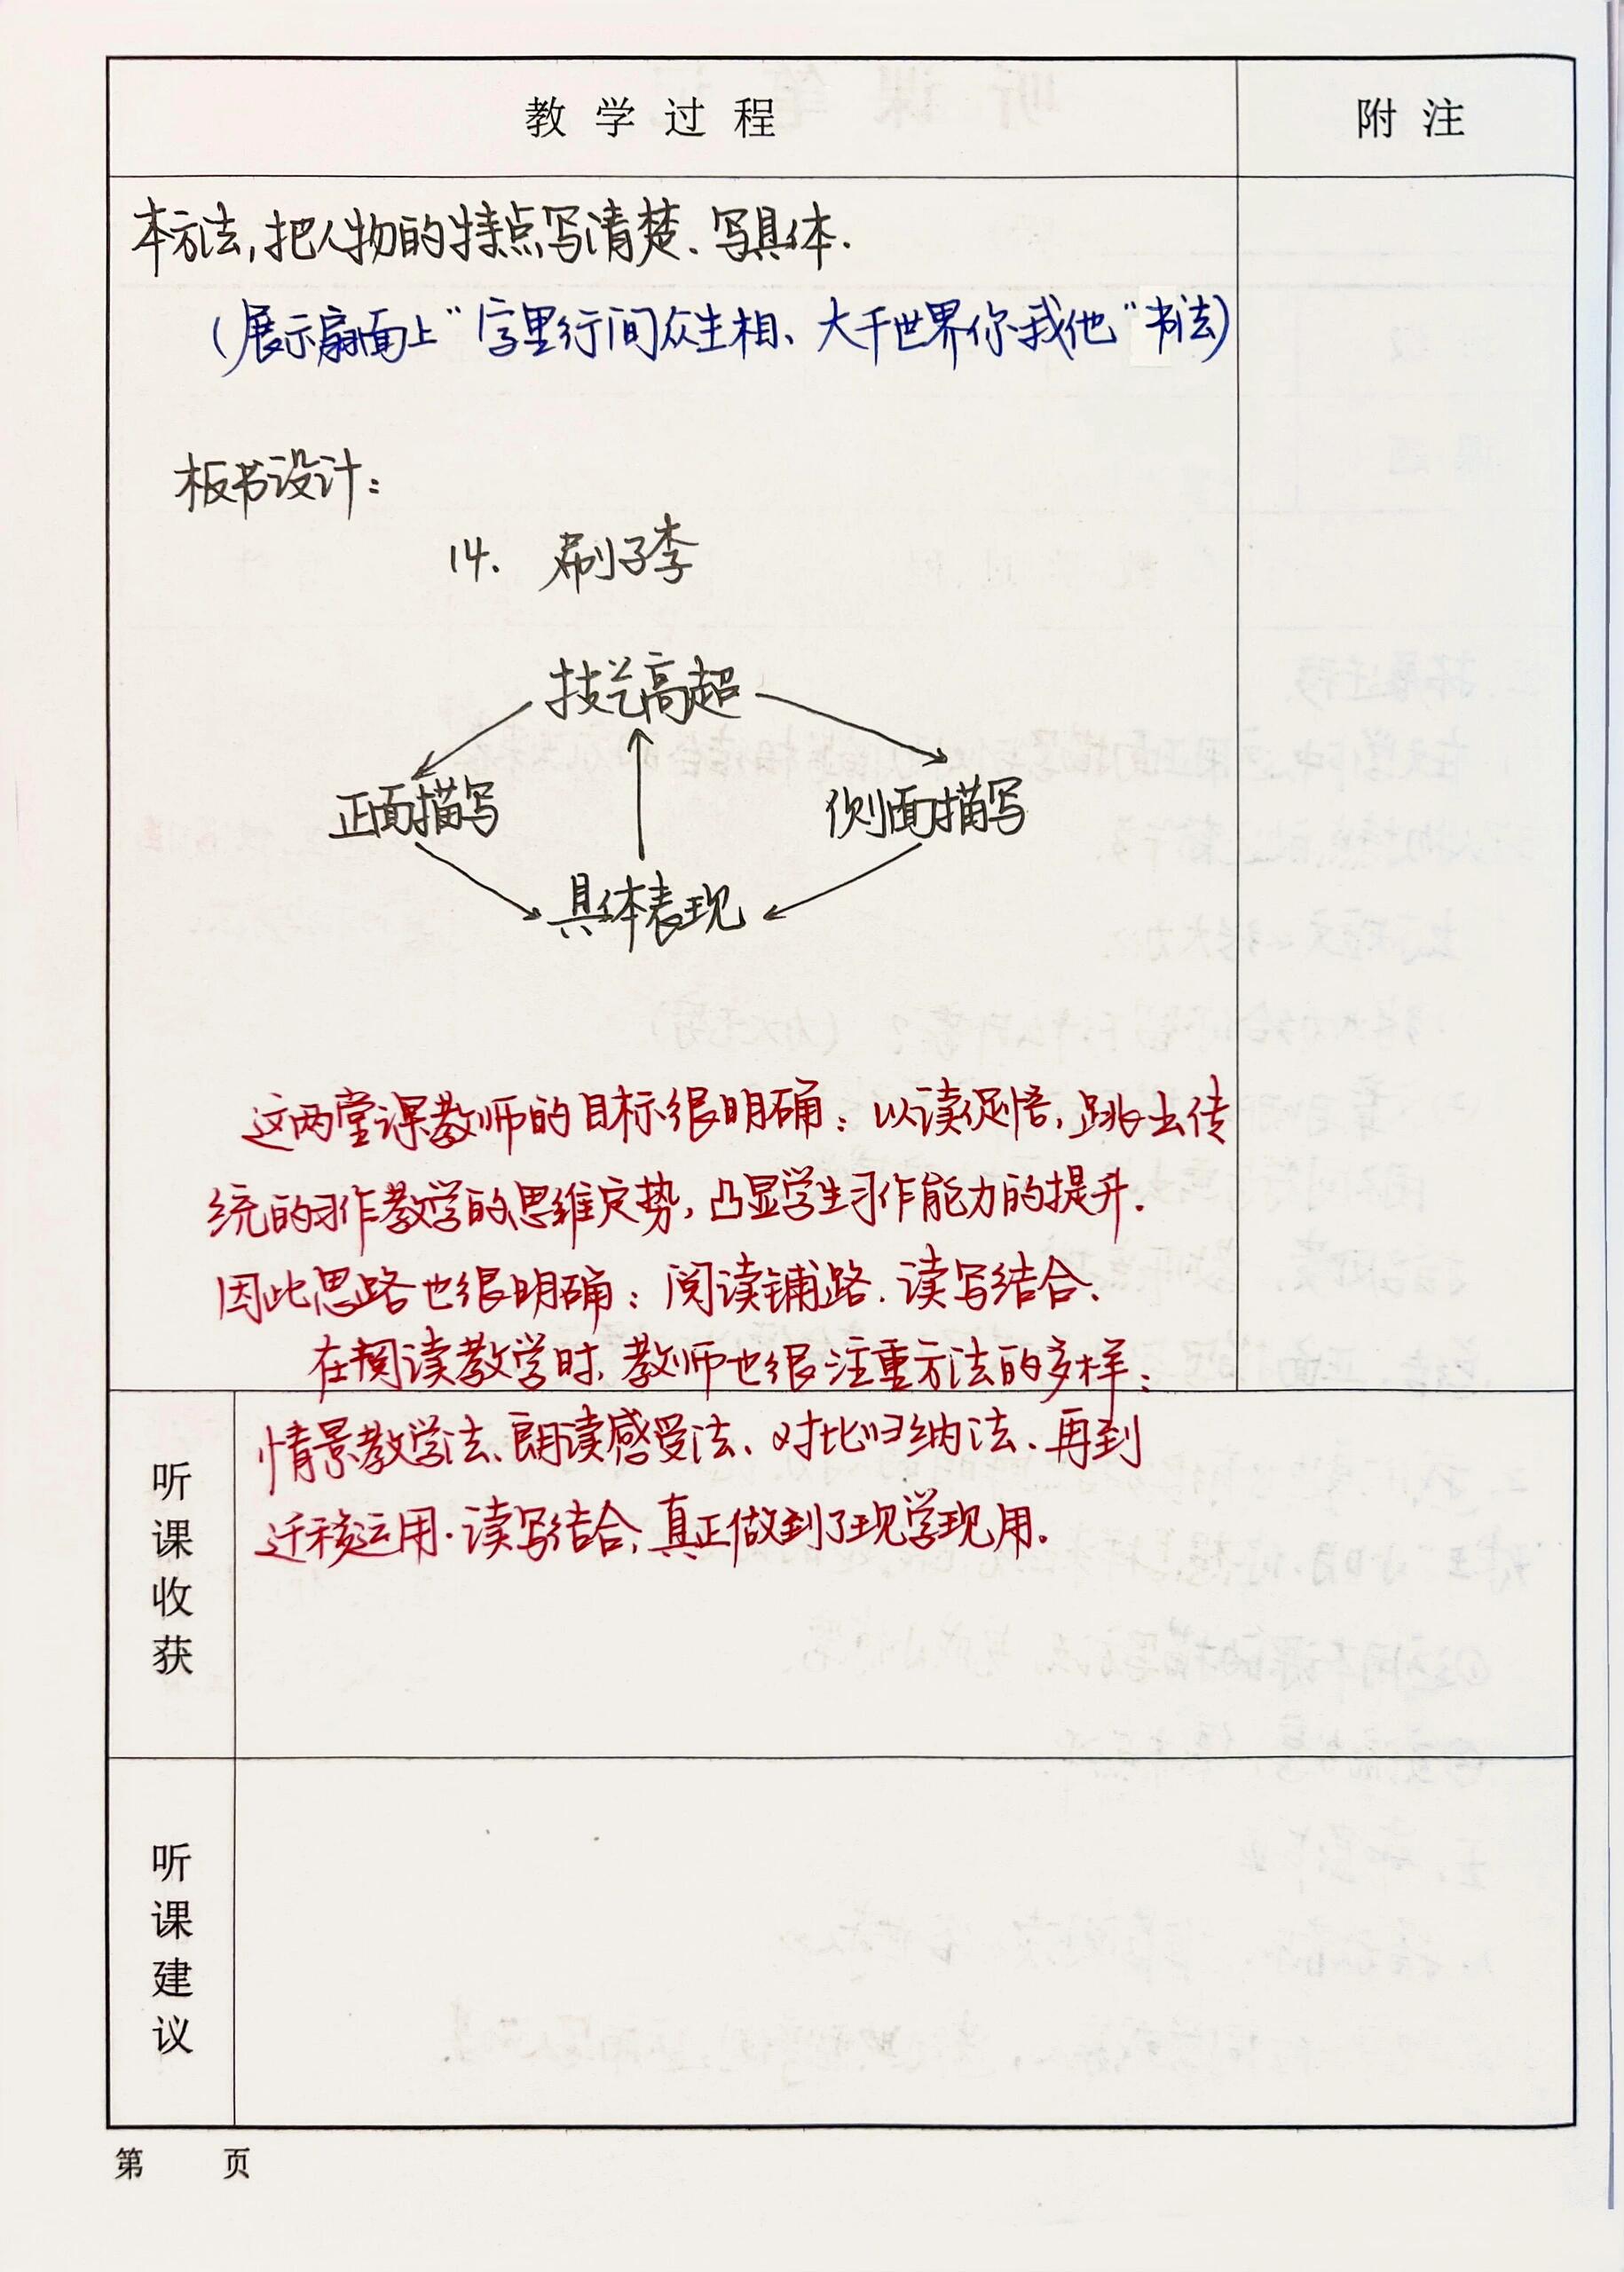 教学过程 附注
本方法,把人物的特点写清楚、写具体.
(展示扇面上“字里行间众生相、大千世界你我他”书法)
板书设计:
14. 刷子李
技艺高超
正面描写 侧面描写
具体表现
这两堂课教师的目标很明确:以读促悟,跳出传
统的习作教学的思维定势,凸显学生习作能力的提升.
因此思路也很明确:阅读铺路.读写结合、
在阅读教学时,教师也很注重方法的多样:
听课收获
情景教学法、朗读感受法、对比归纳法、再到
迁移运用.读写结合,真正做到了现学现用.
听课建议
第 页